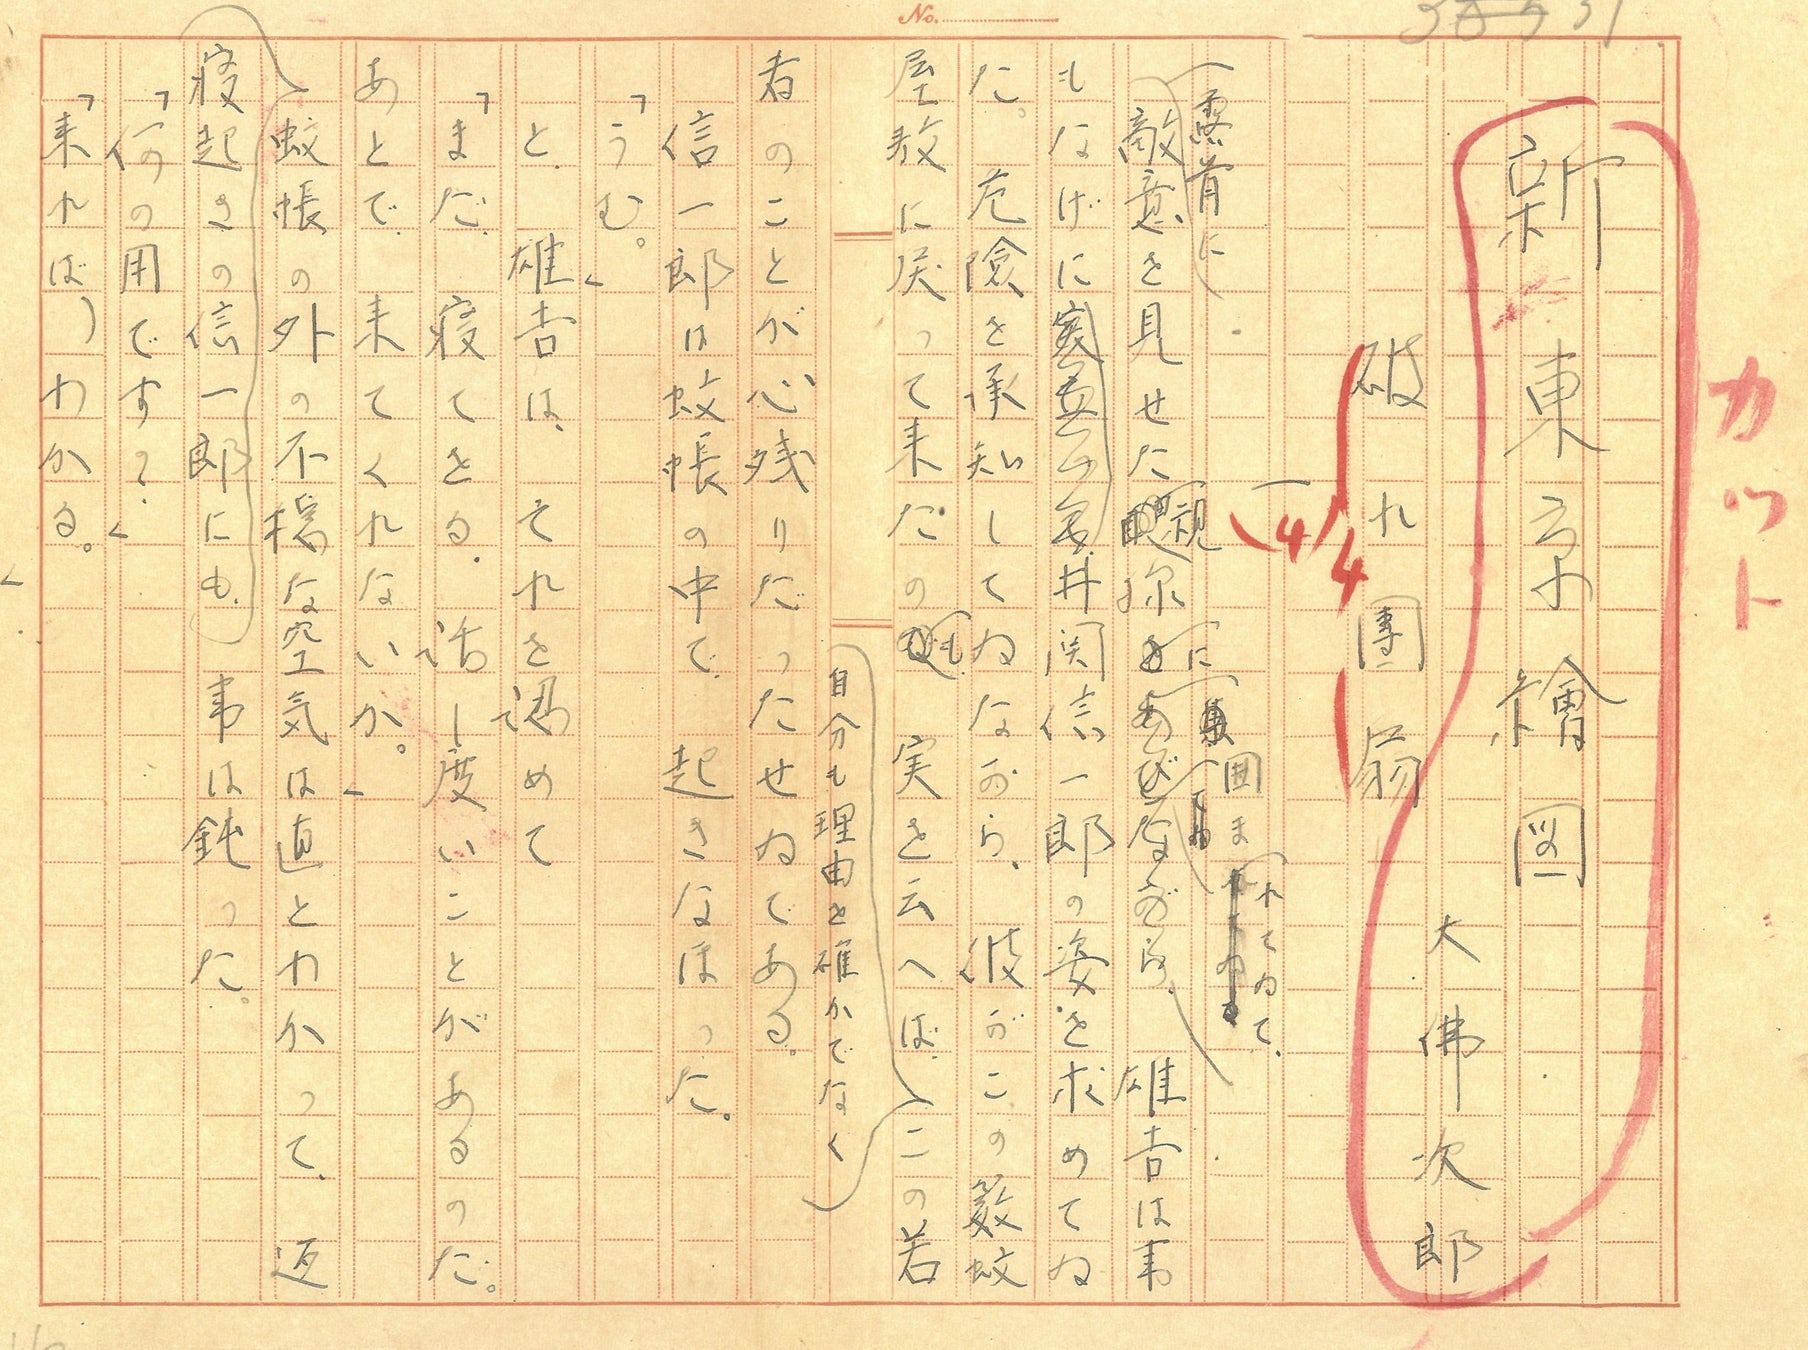 No.
カット
新東京繪図
大佛次郎
破れ團扇
(4) 4
一
(露骨に
敵意を見せた視線に囲まれてゐて、雄吉は事
もなげに井関信一郎の姿を求めてゐ
た。危険を承知してゐながら、彼がこの藪蚊
屋敷に戻って来たのも、実を云へば、この若
自分も理由を確かでなく
者のことが心残りだったせゐである。
信一郎は蚊帳の中で、起きなほった。
「うむ。」
と、雄吉は、それを認めて
「まだ、寝てゐる。話し度いことがあるのだ。
あとで、来てくれないか。」
蚊帳の外の不穏な空気は直とわかって、返
寝起きの信一郎にも、事は鈍った。
「何の用です?」
「来れば、わかる。」